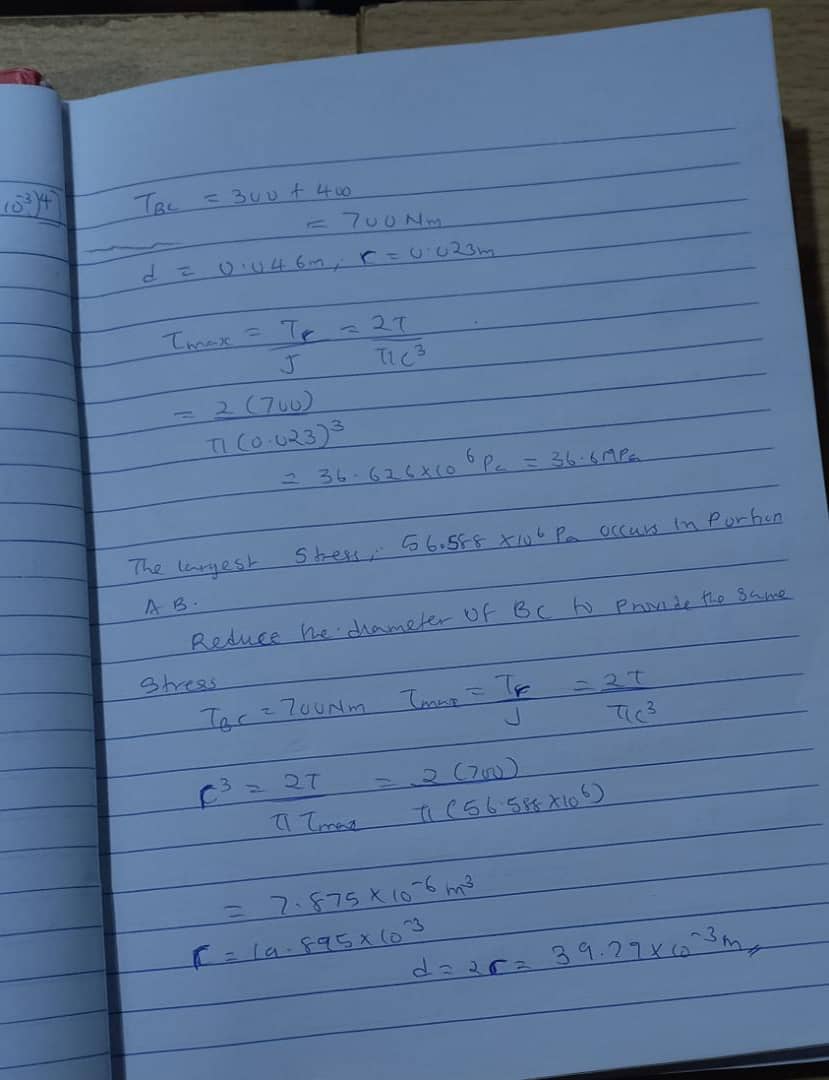 10⁻³)⁴]
T_BC = 300 + 400
= 700 Nm
d = 0.046m, r = 0.023m
τmax = Tr/J = 2T/πc³
= 2(700)/π(0.023)³
= 36.626×10⁶ Pa = 36.6MPa
The largest stress, 56.588 ×10⁶ Pa occurs in Portion
AB.
Reduce the diameter of BC to Provide the same
stress
T_BC = 700Nm τmax = Tr/J = 2T/πc³
r³ = 2T/π τmax = 2(700)/π(56.588×10⁶)
= 7.875×10⁻⁶ m³
r = 19.895×10⁻³
d = 2r = 39.79×10⁻³m